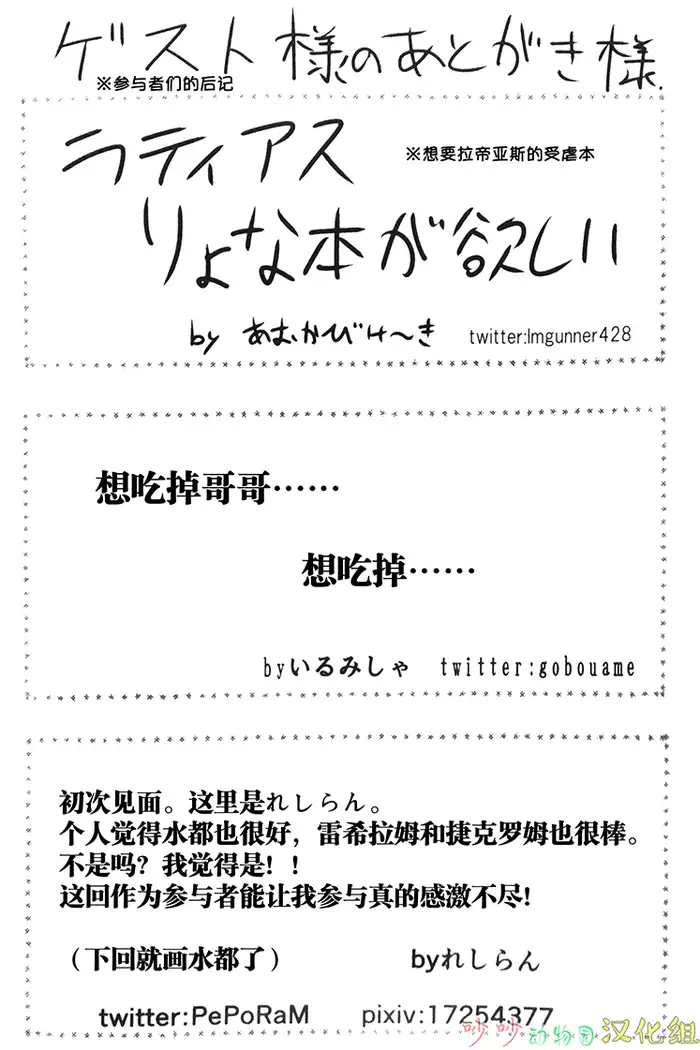 ゲスト様のあとがき様.
※参与者们的后记
ラティアス
※想要拉帝亚斯的受虐本
りょな本が欲しい
by あむかびけ～き twitter:lmgunner428
想吃掉哥哥……
想吃掉……
byいるみしゃ twitter:gobouame
初次见面。这里是れしらん。
个人觉得水都也很好，雷希拉姆和捷克罗姆也很棒。
不是吗？我觉得是！！
这回作为参与者能让我参与真的感激不尽！
（下回就画水都了） byれしらん
twitter:PePoRaM pixiv:17254377
吵吵动物园汉化组